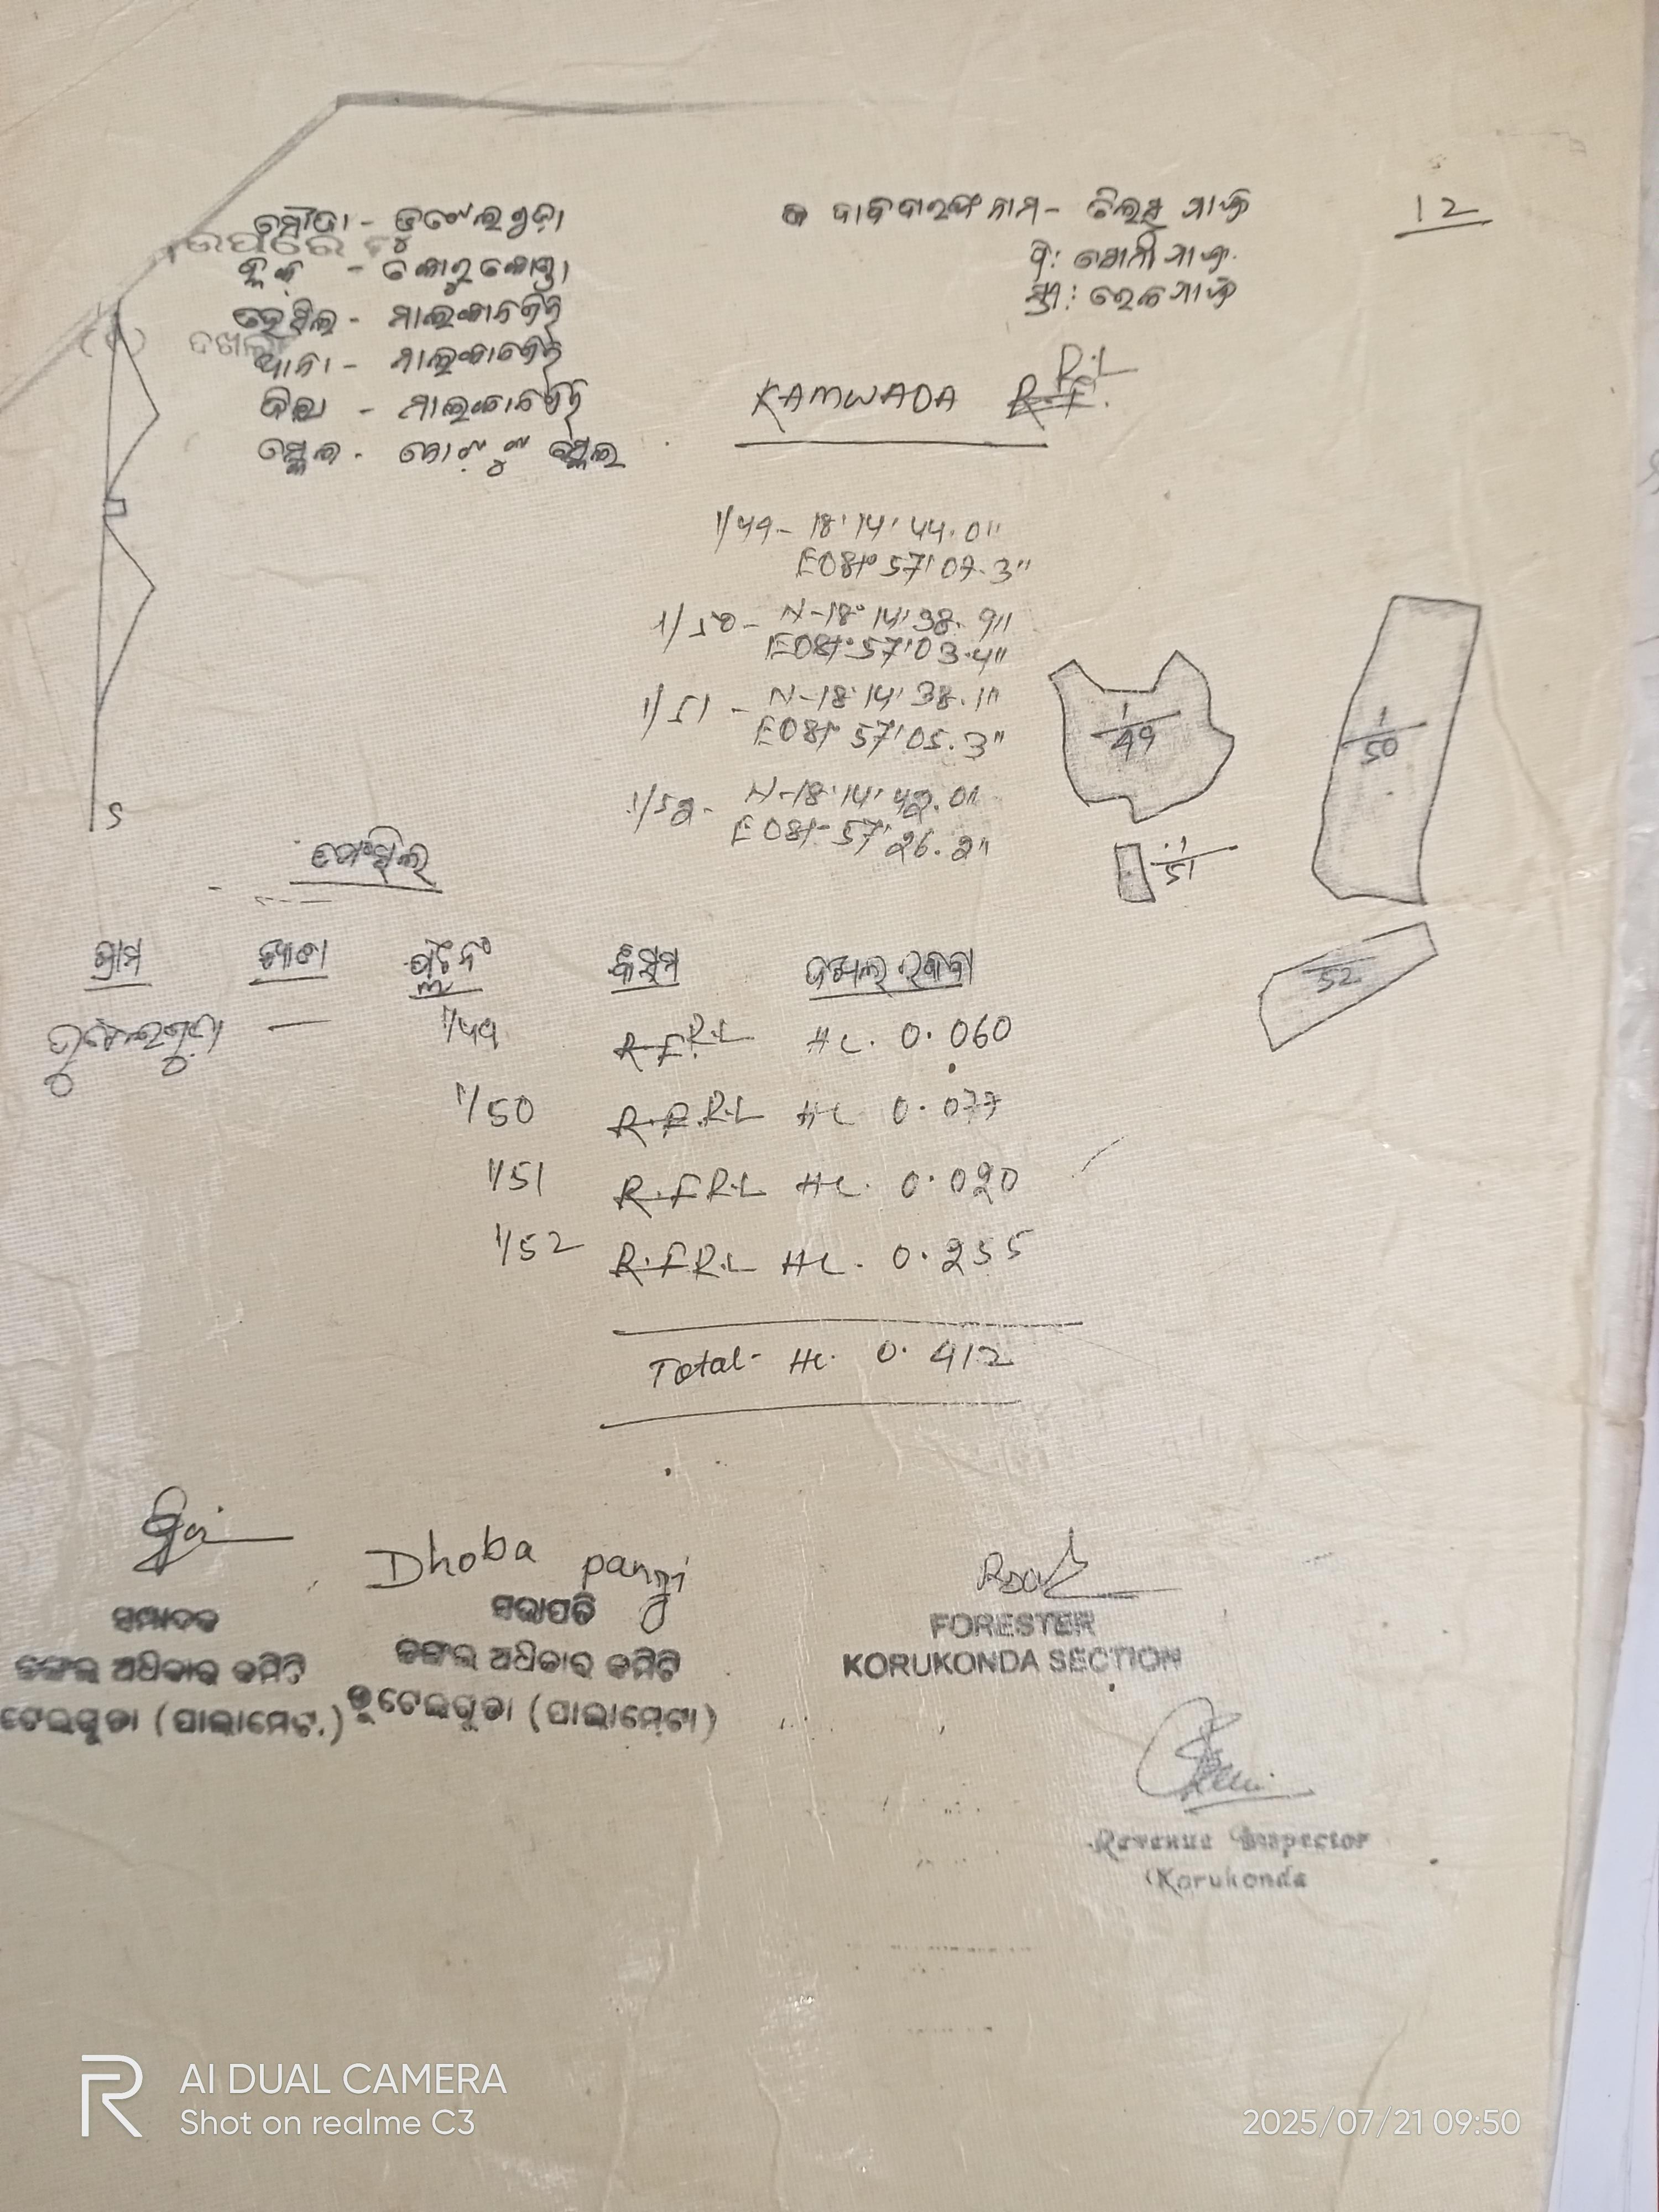 ମୌଜା - ଡୁଟେଲଗୁଡ଼ା
ବ୍ଲକ - କୋରୁକୋଣ୍ଡା
ତହସିଲ - ମାଲକାନଗିରି
ଥାନା - ମାଲକାନଗିରି
ଜିଲ୍ଲା - ମାଲକାନଗିରି
ସ୍କେଲ -
ଉପରେ
ଦଖଲ
ଦାବିଦାରଙ୍କ ନାମ -
12
KAMWADA R.F. R.L
1/49 - 18° 14' 44.0"
E081° 57' 07.3"
1/50 - N-18° 14' 38.9"
E081° 57' 03.4"
1/51 - N-18° 14' 38.1"
E081° 57' 05.3"
1/52 - N-18° 14' 42.0"
E081° 57' 26.2"
1/49
1/50
1/51
52
S
ଗ୍ରାମ ଖାତା ପ୍ଲଟ ନଂ କିସମ ଦଖଲ ରକବା
ଡୁଟେଲଗୁଡ଼ା — 1/49 R.F. R.L Hc. 0.060
1/50 R.F. R.L Hc 0.077
1/51 R.F R.L Hc. 0.020
1/52 R.F R.L Hc. 0.255
Total - Hc. 0.412
Dhoba pangi
ସମ୍ପାଦକ
ଜଙ୍ଗଲ ଅଧିକାର କମିଟି
ଟେଲଗୁଡା (ପାଲାମେଟ.)
ସଭାପତି
ଜଙ୍ଗଲ ଅଧିକାର କମିଟି
ଡୁଟେଲଗୁଡା (ପାଲାମେଟା)
FORESTER
KORUKONDA SECTION
Revenue Inspector
Korukonda
AI DUAL CAMERA
Shot on realme C3
2025/07/21 09:50